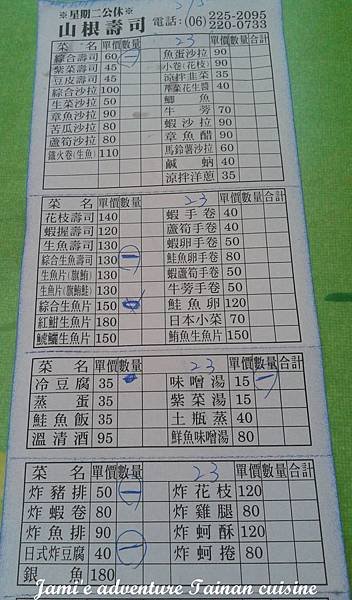 ※星期二公休※
山根壽司 電話:(06) 225-2095
220-0733
菜名 單價 數量 23 合計
綜合壽司 60 一 魚蛋沙拉 90
紫菜壽司 45 小卷(花枝) 90
豆皮壽司 45 涼拌韭菜 35
綜合沙拉 100
生菜沙拉 50 鯽魚
章魚沙拉 90 牛蒡 70
苦瓜沙拉 80 蝦沙拉 90
蘆筍沙拉 80 章魚醋 90
鐵火卷(生魚) 110 馬鈴薯沙拉 60
鹹蚋 40
涼拌洋蔥 35
菜名 單價 數量 23 合計
花枝壽司 140 蝦手卷 40
蝦握壽司 120 蘆筍手卷 40
生魚壽司 130 蝦卵手卷 50
綜合生魚壽司 130 一 鮭魚卵手卷 80
生魚片(旗鮪) 130 蝦蘆筍手卷 50
生魚片(旗鮪鮭) 130 牛蒡手卷 50
綜合生魚片 150 鮭魚卵 120
紅魽生魚片 180 日本小菜 70
鯱鱺生魚片 150 鮪魚生魚片 150
菜名 單價 數量 23 合計
冷豆腐 35 味噌湯 15 一
蒸蛋 35 紫菜湯 15
鮭魚飯 35 土瓶蒸 40
溫清酒 95 鮮魚味噌湯 80
菜名 單價 數量 23 單價 數量 合計
炸豬排 50 一 炸花枝 120
炸蝦卷 80 炸雞腿 80
炸魚排 90 炸蚵酥 120
日式炸豆腐 40 一 炸蚵捲 80
銀魚 180
Jami'e adventure Tainan cuisine